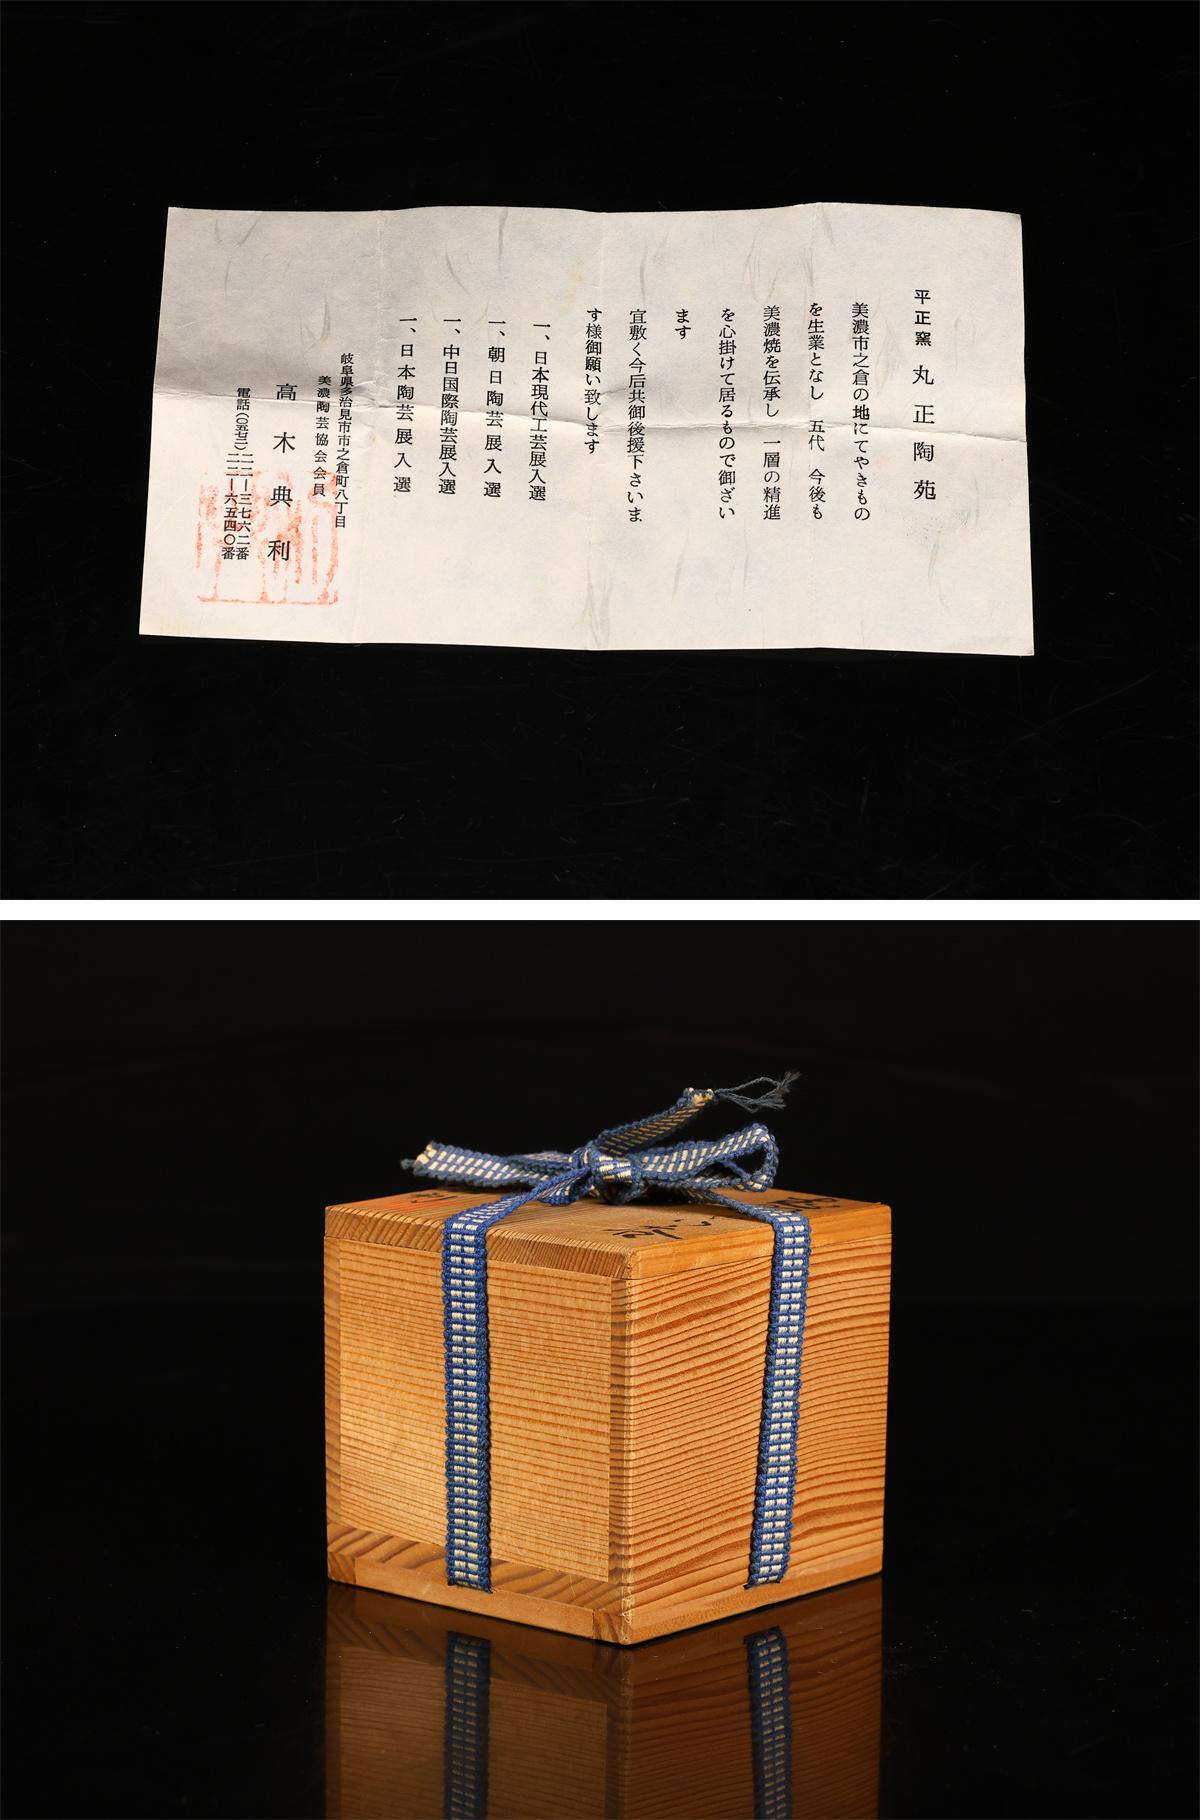 平正窯 丸正陶苑
美濃市之倉の地にてやきもの
を生業となし 五代 今後も
美濃焼を伝承し 一層の精進
を心掛けて居るもので御ざい
ます
宜敷く今后共御後援下さいま
す様御願い致します
一、日本現代工芸展入選
一、朝日陶芸展入選
一、中日国際陶芸展入選
一、日本陶芸展入選
岐阜県多治見市市之倉町八丁目
美濃陶芸協会会員
高木典利
電話(〇五七二)二二―三七六二番
二二―六五四〇番